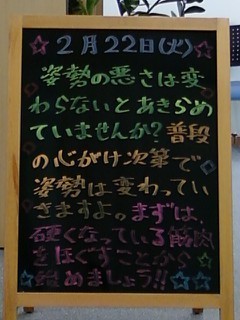 ☆2月22日(火)☆
姿勢の悪さは変
わらないとあきらめ
ていませんか?普段
の心がけ次第で
姿勢は変わってい
きますよ。まずは、
硬くなっている筋肉
をほぐすことから
始めましょう!!